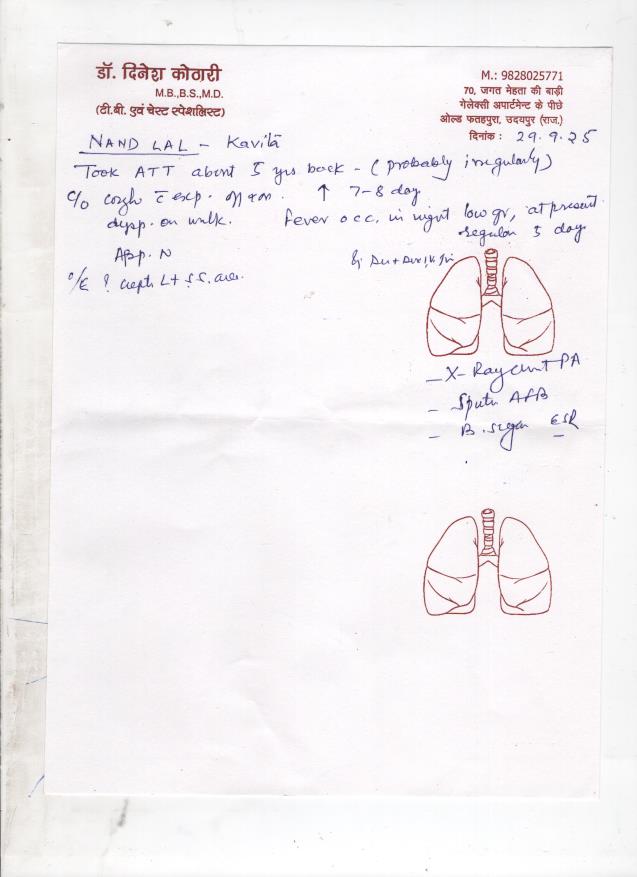 डॉ. दिनेश कोठारी
M.B.,B.S.,M.D.
(टी.बी. एवं चेस्ट स्पेशलिस्ट)
M.: 9828025771
70, जगत मेहता की बाड़ी
गेलेक्सी अपार्टमेन्ट के पीछे
ओल्ड फतहपुरा, उदयपुर (राज.)
दिनांक : 29.9.25
NAND LAL - Kavitā
Took ATT about 5 yrs back - (probably irregularly)
C/o cough c̄ exp. off & on. ↑ 7-8 day
dysp. on walk. Fever occ. in night low gr, at present
regular 5 day
App. N
O/E ? crepts L+
- X-Ray chest PA
- Sputum AFB
- B. sugar ESR